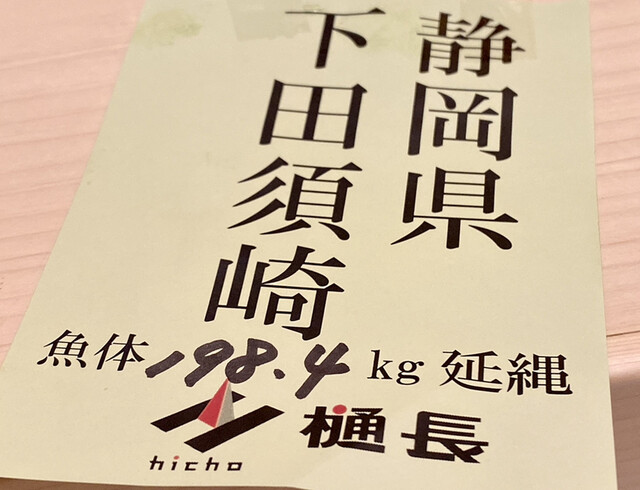 静岡県
下田須崎
魚体198.4kg 延縄
樋長
hicho